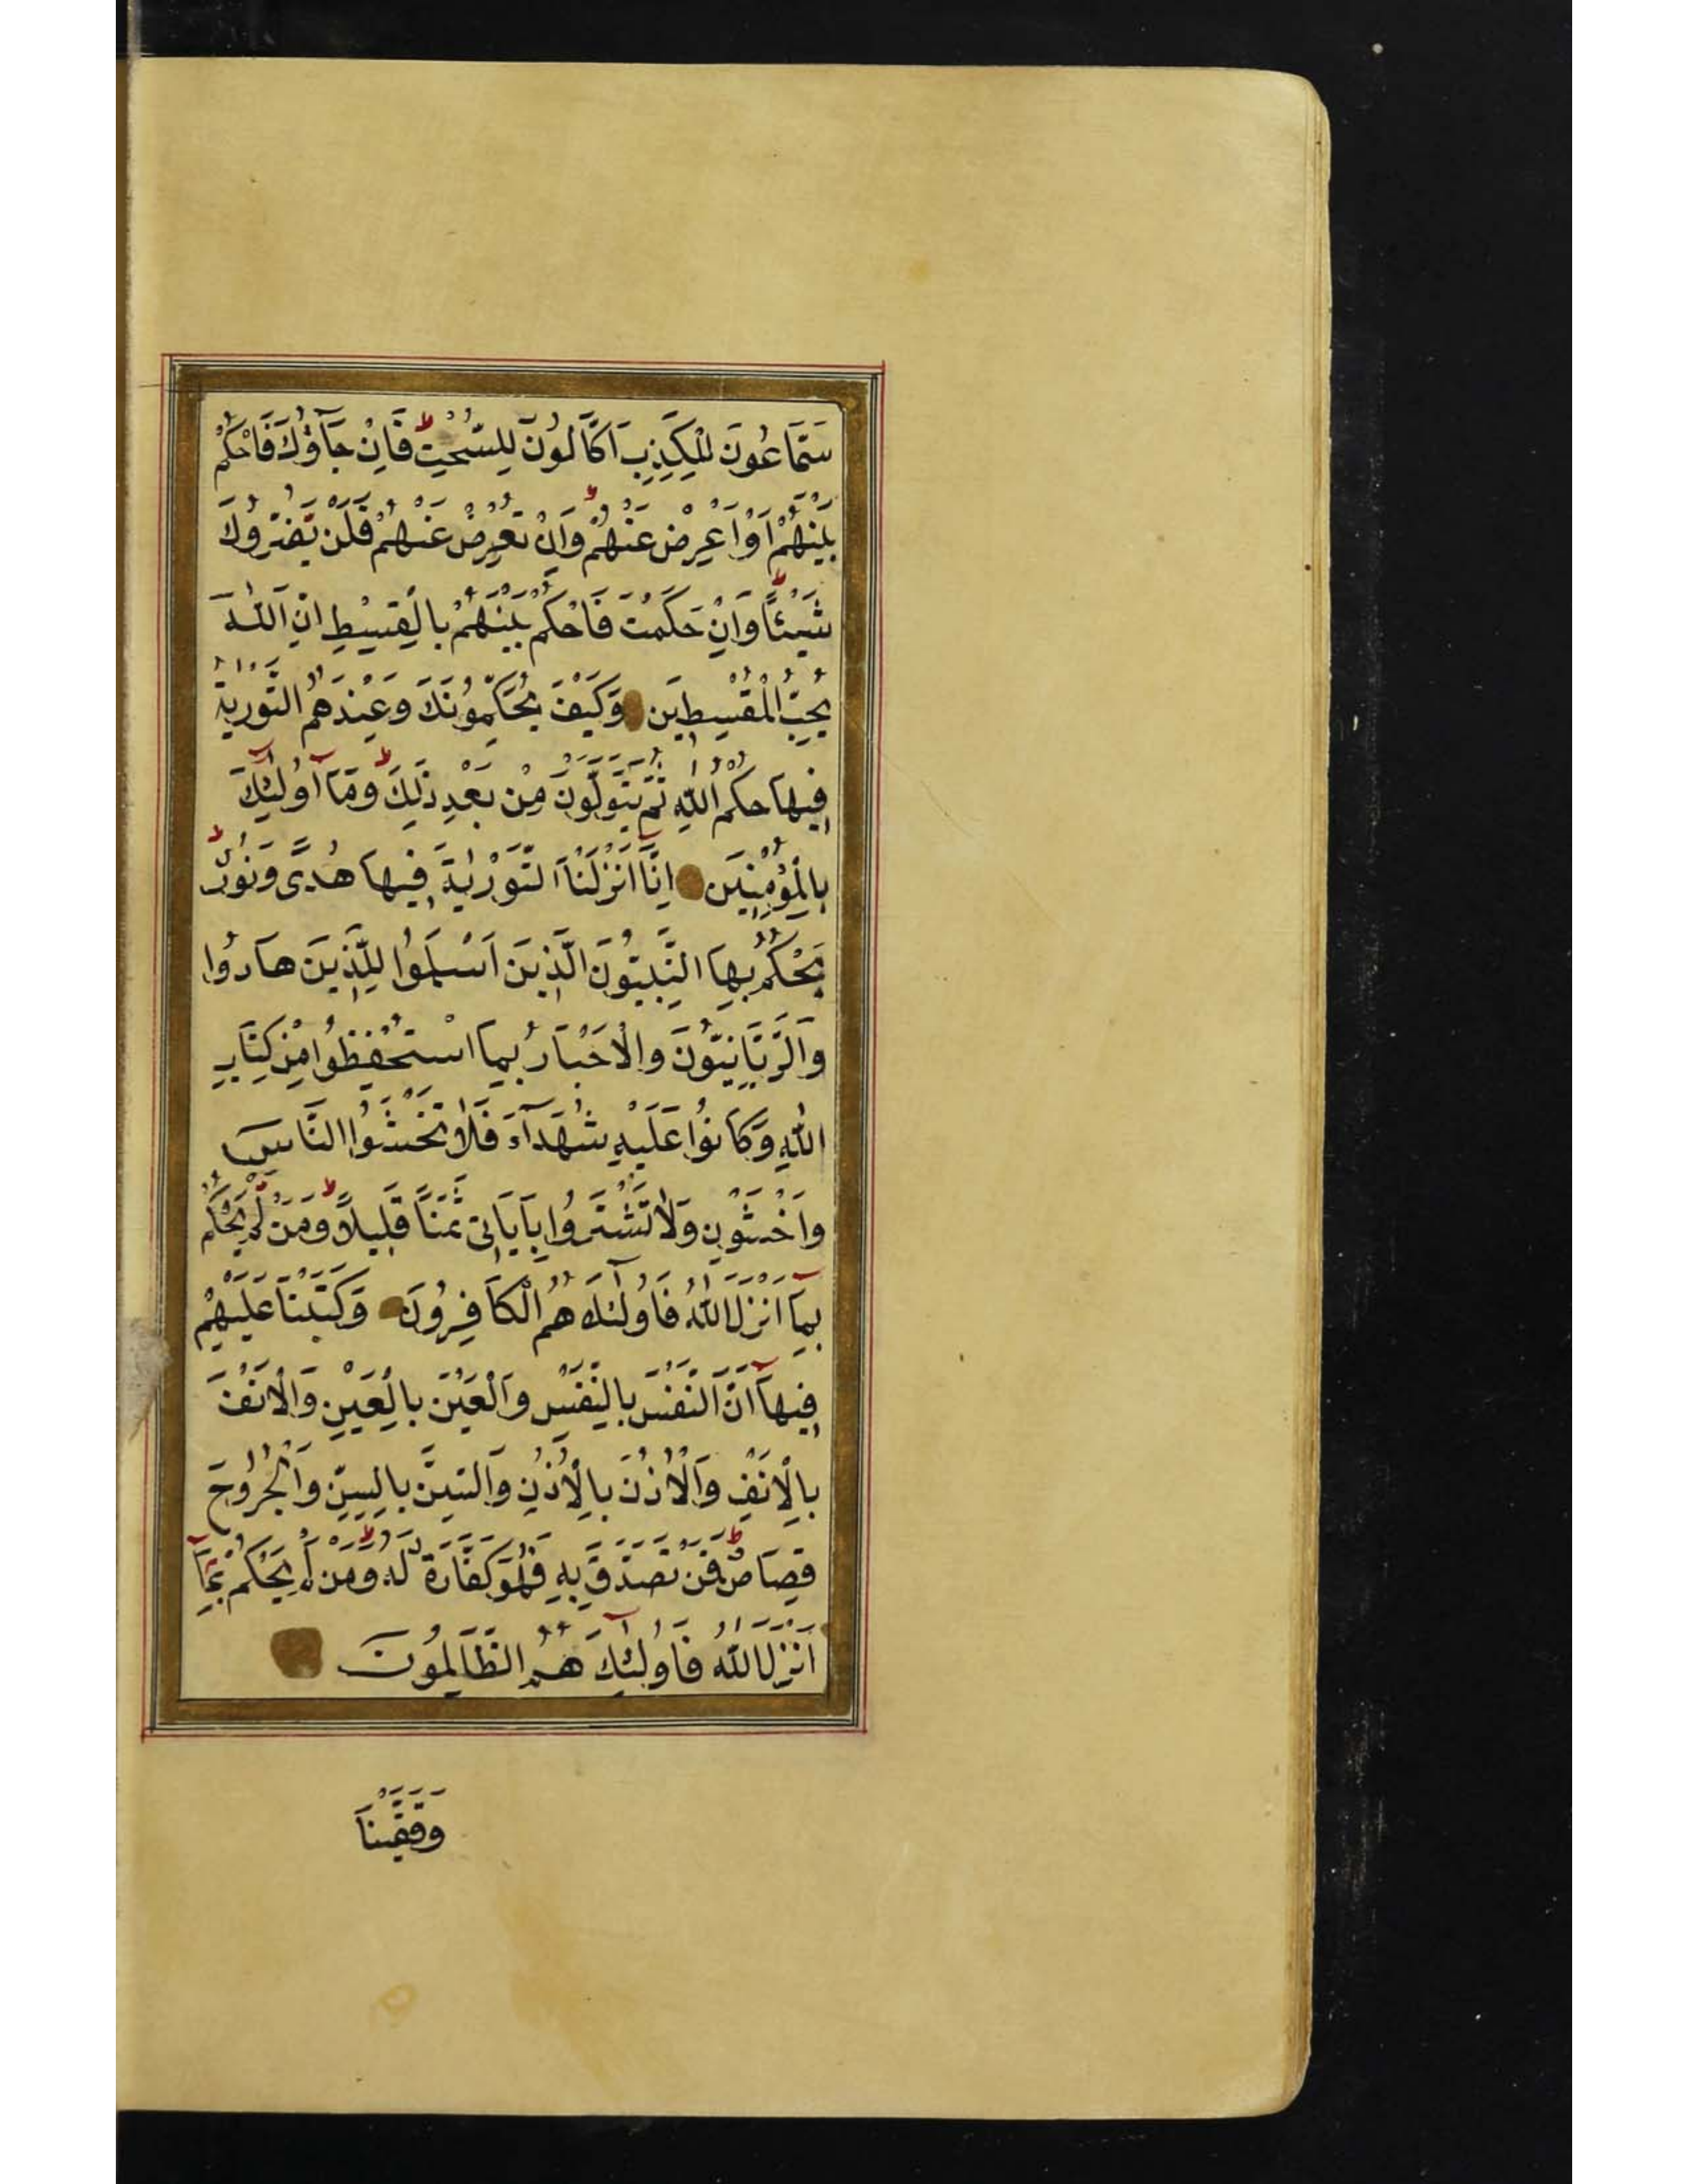 سَمَّاعُونَ لِلْكَذِبِ اَكَّالُونَ لِلسُّحْتِ ط فَاِنْ جَآؤُكَ فَاحْكُمْ
بَيْنَهُمْ اَوْ اَعْرِضْ عَنْهُمْ ط وَاِنْ تُعْرِضْ عَنْهُمْ فَلَنْ يَضُرُّوكَ
شَيْـًٔا ط وَاِنْ حَكَمْتَ فَاحْكُمْ بَيْنَهُمْ بِالْقِسْطِ اِنَّ اللّٰهَ
يُحِبُّ الْمُقْسِطِينَ وَكَيْفَ يُحَكِّمُونَكَ وَعِنْدَهُمُ التَّوْرٰيةُ
فِيهَا حُكْمُ اللّٰهِ ثُمَّ يَتَوَلَّوْنَ مِنْ بَعْدِ ذٰلِكَ ط وَمَآ اُولٰٓئِكَ
بِالْمُؤْمِنِينَ اِنَّآ اَنْزَلْنَا التَّوْرٰيةَ فِيهَا هُدًى وَنُورٌ ط
يَحْكُمُ بِهَا النَّبِيُّونَ الَّذِينَ اَسْلَمُوا لِلَّذِينَ هَادُوا
وَالرَّبَّانِيُّونَ وَالْاَحْبَارُ بِمَا اسْتُحْفِظُوا مِنْ كِتَابِ
اللّٰهِ وَكَانُوا عَلَيْهِ شُهَدَآءَ فَلَا تَخْشَوُا النَّاسَ
وَاخْشَوْنِ وَلَا تَشْتَرُوا بِاٰيَاتِى ثَمَنًا قَلِيلًا ط وَمَنْ لَمْ يَحْكُمْ
بِمَآ اَنْزَلَ اللّٰهُ فَاُولٰٓئِكَ هُمُ الْكَافِرُونَ وَكَتَبْنَا عَلَيْهِمْ
فِيهَآ اَنَّ النَّفْسَ بِالنَّفْسِ وَالْعَيْنَ بِالْعَيْنِ وَالْاَنْفَ
بِالْاَنْفِ وَالْاُذُنَ بِالْاُذُنِ وَالسِّنَّ بِالسِّنِّ وَالْجُرُوحَ
قِصَاصٌ ط فَمَنْ تَصَدَّقَ بِهِ فَهُوَ كَفَّارَةٌ لَهُ ط وَمَنْ لَمْ يَحْكُمْ بِمَآ
اَنْزَلَ اللّٰهُ فَاُولٰٓئِكَ هُمُ الظَّالِمُونَ
وَقَفَّيْنَا